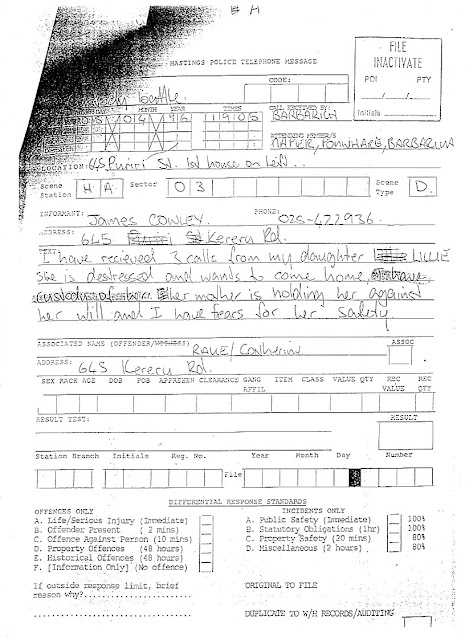 HASTINGS POLICE TELEPHONE MESSAGE
FILE
INACTIVATE
POI PTY
__/__/__
Initials
CODE:
MONTH YEAR TIMES CALL RECEIVED BY:
05 04 96 1905 BARBARICH
ATTENDING MEMBER/S
NAPIER, POMWHARE, BARBARICH
LOCATION: 645 Puriri Sd. 1st house on left..
Scene Station H A Sector 0 3 Scene Type D.
INFORMANT: James CONLEY. PHONE: 025-422936.
ADDRESS: 645 Puriri St Kereru Rd.
TEXT: I have recieved 3 calls from my daughter LILLIE
She is destressed and wants to come home,
custody of her. Her mother is holding her against
her will and I have fears for her safety.
ASSOCIATED NAME (OFFENDER/WITNESS) RAUE/Catherine ASSOC
ADDRESS: 645 Kereru Rd.
SEX RACE AGE DOB POB APPREHEN CLEARANCE GANG AFFIL ITEM CLASS VALUE QTY REC VALUE REC QTY
RESULT TEST: RESULT
Station Branch Initials Reg. No. Year Month Day Number
File
DIFFERENTIAL RESPONSE STANDARDS
OFFENCES ONLY
A. Life/Serious Injury (Immediate)
B. Offender Present ( 2 mins)
C. Offence Against Person (10 mins)
D. Property Offences (48 hours)
E. Historical Offences (48 hours)
F. [Information Only] (No offence)
INCIDENTS ONLY
A. Public Safety (Immediate) 100%
B. Statutory Obligations (1hr) 100%
C. Property Safety (20 mins) 80%
D. Miscellaneous (2 hours) 80%
If outside response limit, brief
reason why?..................
ORIGINAL TO FILE
DUPLICATE TO W/H RECORDS/AUDITING